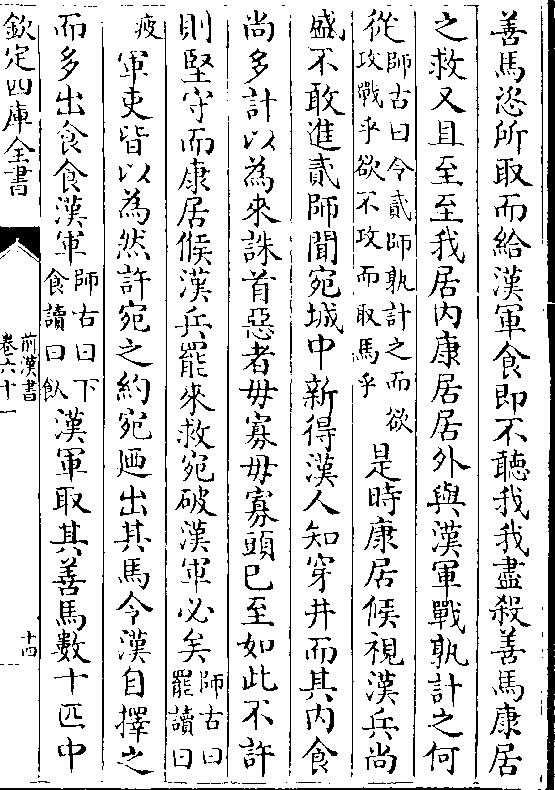 善馬恣所取而給漢軍食即不聽我我盡殺善馬康居
之救又且至至我居内康居居外與漢軍戰孰計之何
從師古曰令貳師孰計之而欲攻戰乎欲不攻而取馬乎是時康居候視漢兵尚
盛不敢進貳師聞宛城中新得漢人知穿井而其内食
尚多計以為來誅首惡者毋寡毋寡頭已至如此不許
則堅守而康居候漢兵罷來救宛破漢軍必矣師古曰罷讀曰
疲軍吏皆以為然許宛之約宛廼出其馬令漢自擇之
而多出食食漢軍師古曰下食讀曰飤漢軍取其善馬數十匹中
欽定四庫全書
前漢書
卷六十一
十四